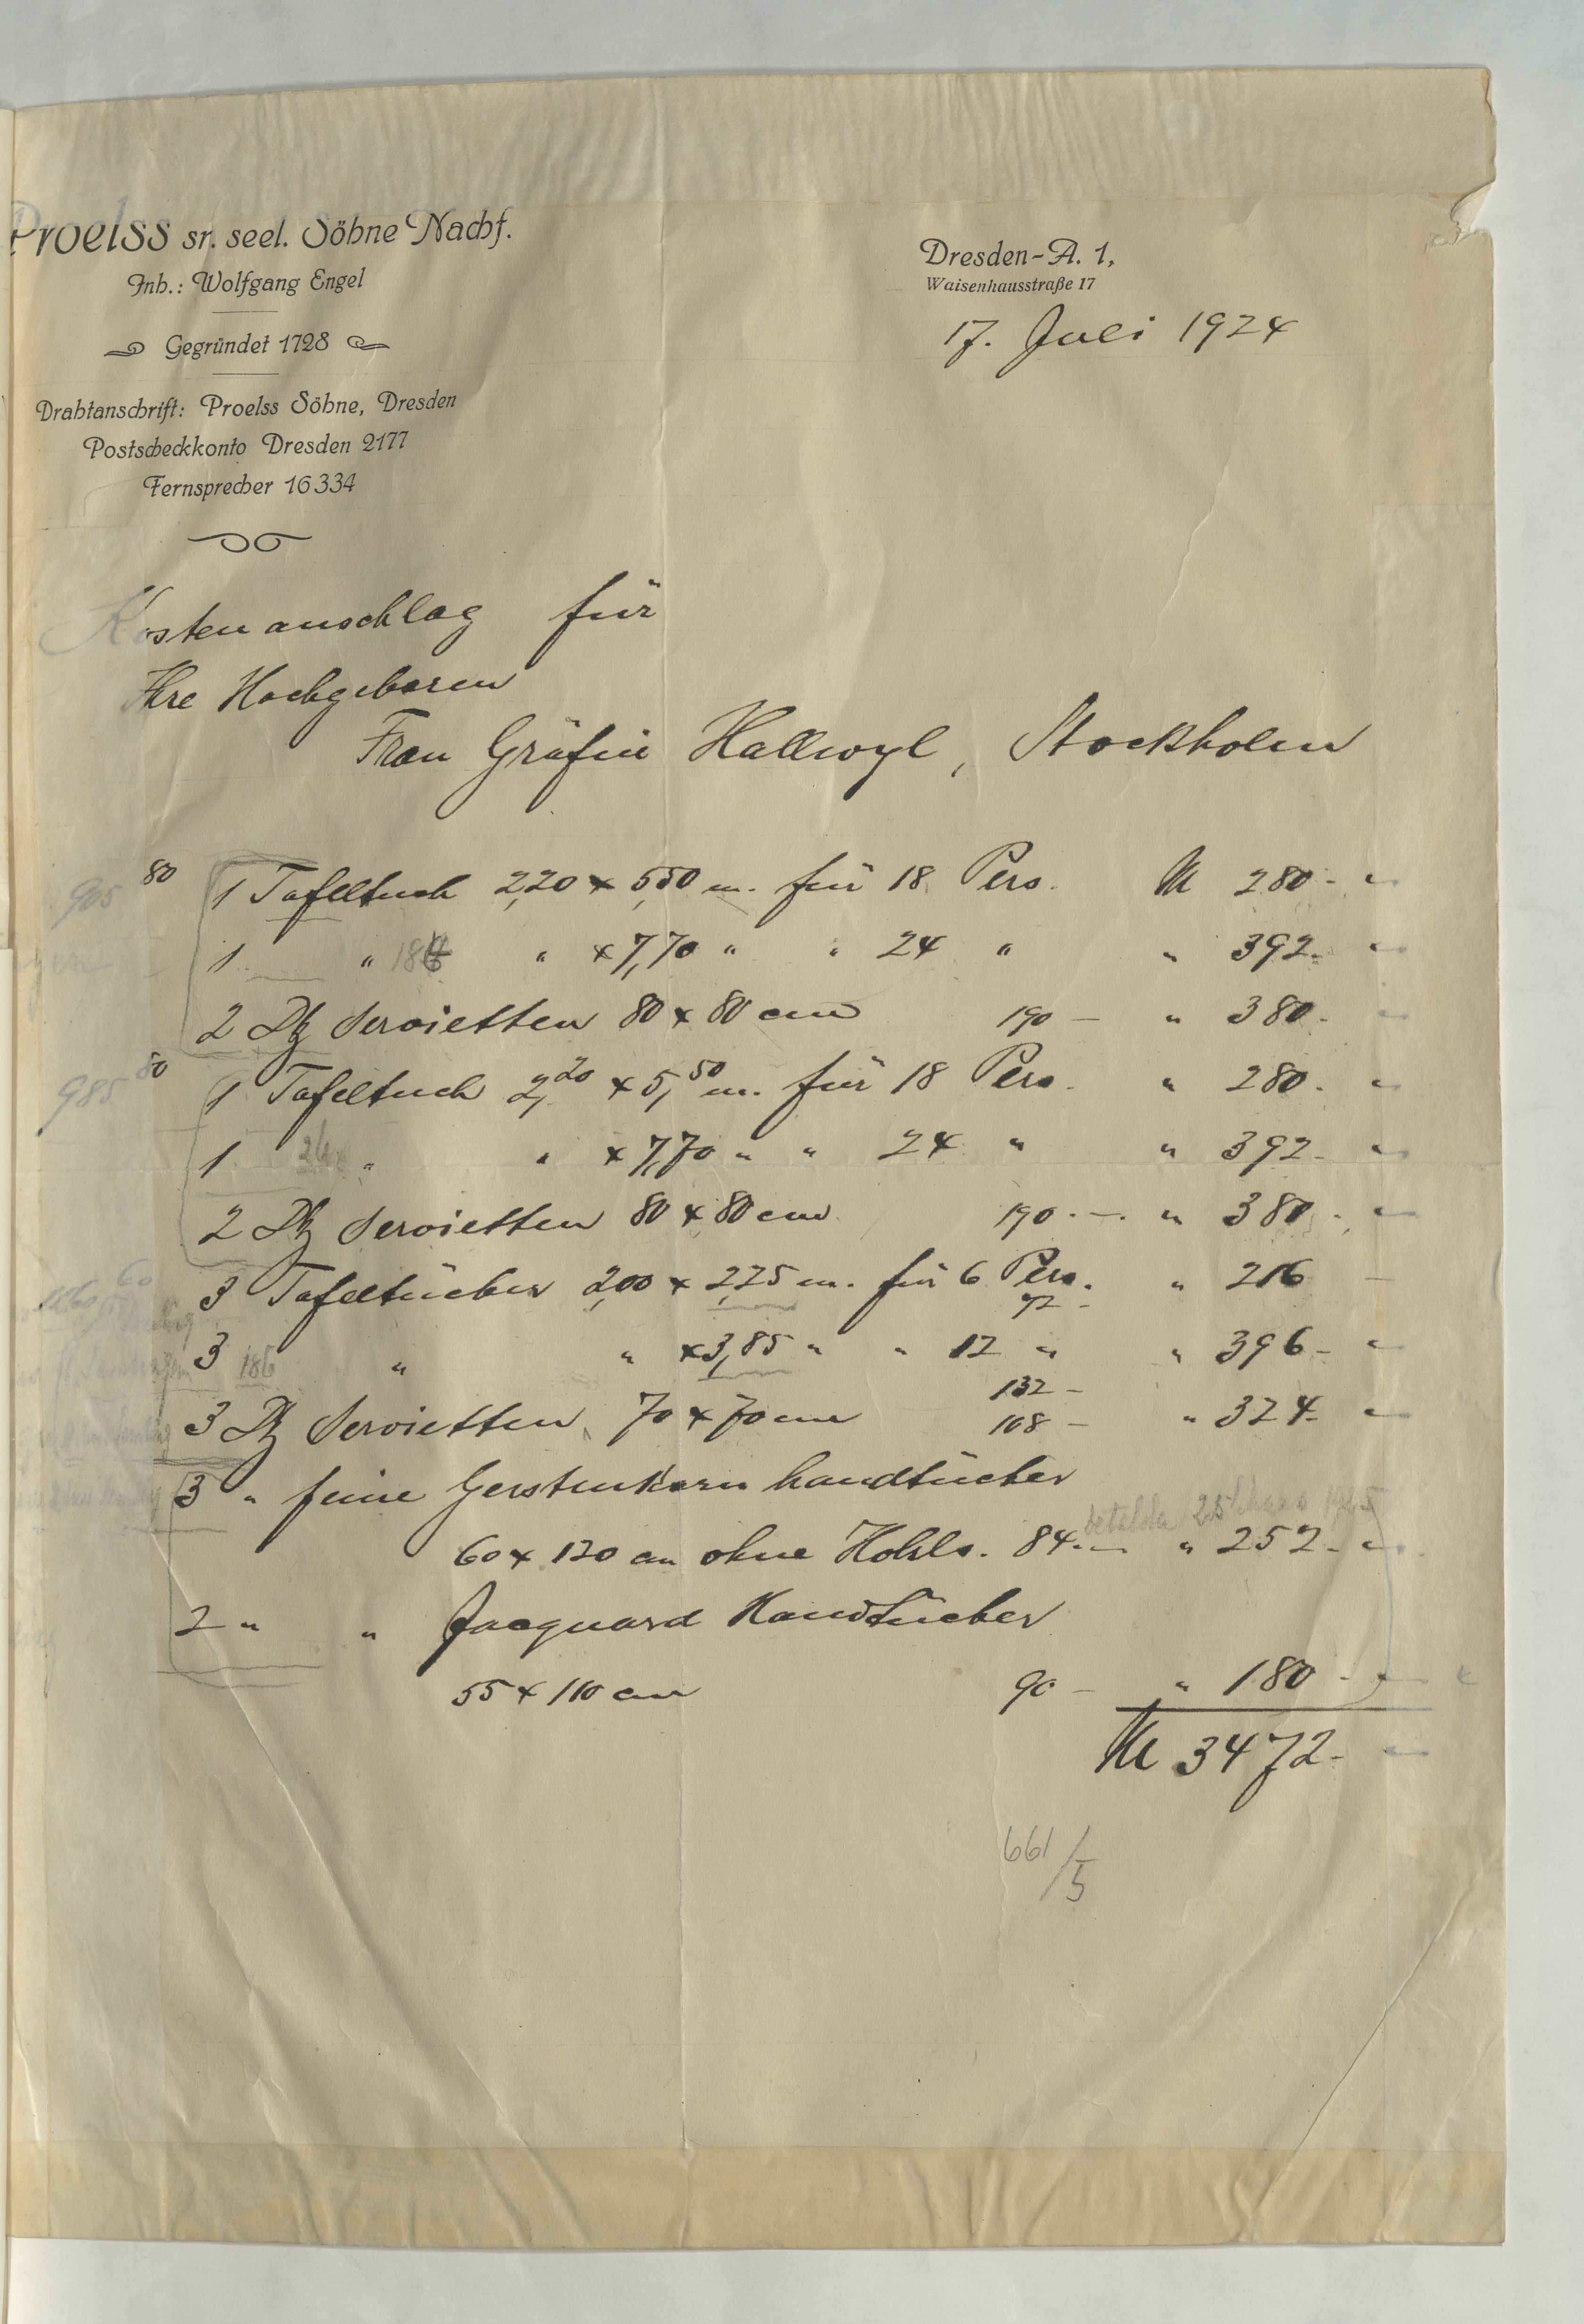 Proelss sr. seel. Söhne Nachf.
Inh.: Wolfgang Engel
Gegründet 1728
Drahtanschrift: Proelss Söhne, Dresden
Postscheckkonto Dresden 2177
Fernsprecher 16334
Dresden-A. 1,
Waisenhausstraße 17
17. Juli 1924
Kostenanschlag für
Ihre Hochgeboren
Frau Gräfin Hallwyl, Stockholm
905 80 1 Tafeltuch 2,20 x 5,50 m. für 18 Pers. M 280 - "
1 " " x 7,70 " " 24 " " 392 - "
2 Dtz Servietten 80 x 80 cm 190 — " 380 - "
985 80 1 Tafeltuch 2,20 x 5,50 m. für 18 Pers. " 280 - "
1 24 " " x 7,70 " " 24 " " 392 - "
2 Dtz Servietten 80 x 80 cm 190.—. " 380 - "
3 Tafeltücher 2,00 x 2,25 m. für 6 Pers. " 216 -
72 -
3 186 " " x 3,85 " " 12 " " 396 - "
132 -
3 Dtz Servietten 70 x 70 cm 108 - " 324 - "
3 " feine Gerstenkorn handtücher
betalda 25 Mars 1925
60 x 120 cm ohne Hohls. 84.— " 252 - "
2 " " Jacquard Handtücher
55 x 110 cm 90 - " 180 - "
M 3472 - "
661/5